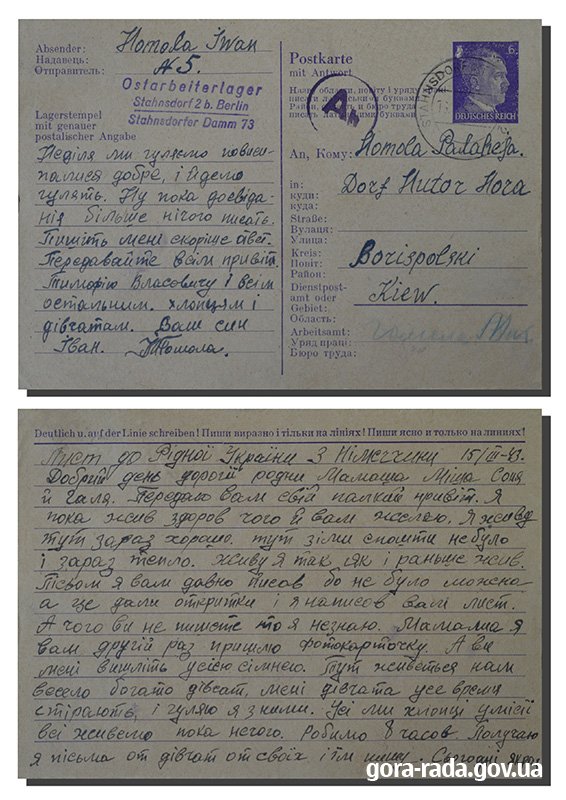 Absender:
Надавець:
Отправитель:
Homola Iwan
№5.
Ostarbeiterlager
Stahnsdorf 2 b. Berlin
Stahnsdorfer Damm 73
Lagerstempel
mit genauer
postalischer Angabe
Неділя ми гуляємо повиси-
палися добре, і йдемо
гулять. Ну пока досвіда-
нія більше нічого писать.
Пишіть мені скоріше
Передавайте всім привіт.
Тимофію Власовичу і всім
остальним. хлопцям і
дівчатам. Ваш син
Іван. Гомола.
Postkarte
mit Antwort
Ab
STAHNSDORF
6
DEUTSCHES REICH
An, Кому: Homola
in:
куди:
куда:
Dorf Hutor Hora
Straße:
Вулиця:
Улица:
Kreis:
Повіт:
Район:
Borispolski
Dienstpost-
amt oder
Gebiet:
Область:
Kiew.
Arbeitsamt:
Уряд праці:
Бюро труда:
Deutlich u. auf der Linie schreiben! Пиши виразно і тільки на лініях! Пиши ясно и только на линиях!
Лист до Рідної України з Німеччини 15/III-43.
Добрий день дорогії родни Мамаша Міша Соня
й Галя. Передаю вам свій палкий привіт. Я
пока жив здоров чого й вам желаю. Я живу
тут зараз хорошо. тут зіми спошти небуло
і зараз тепло. живу я так як і раньше жив.
Пісьом я вам давно писав бо не було можна
а це дали откритки і я написов вам лист.
А чого ви не пишете то я незнаю. Мамаша я
вам другій раз пришлю фотокарточку. А ви
мені вишліть усією сімнею. Тут живеться нам
весело богато дівчат, мені дівчата усе время
стірають, і гуляю я з ними. Усі ми хлопці умісті
всі живемо пока нечого. Робимо 8 часов Получаю
я письма от дівчат от своїх і їм пишу. Сьогодні
gora-rada.gov.ua